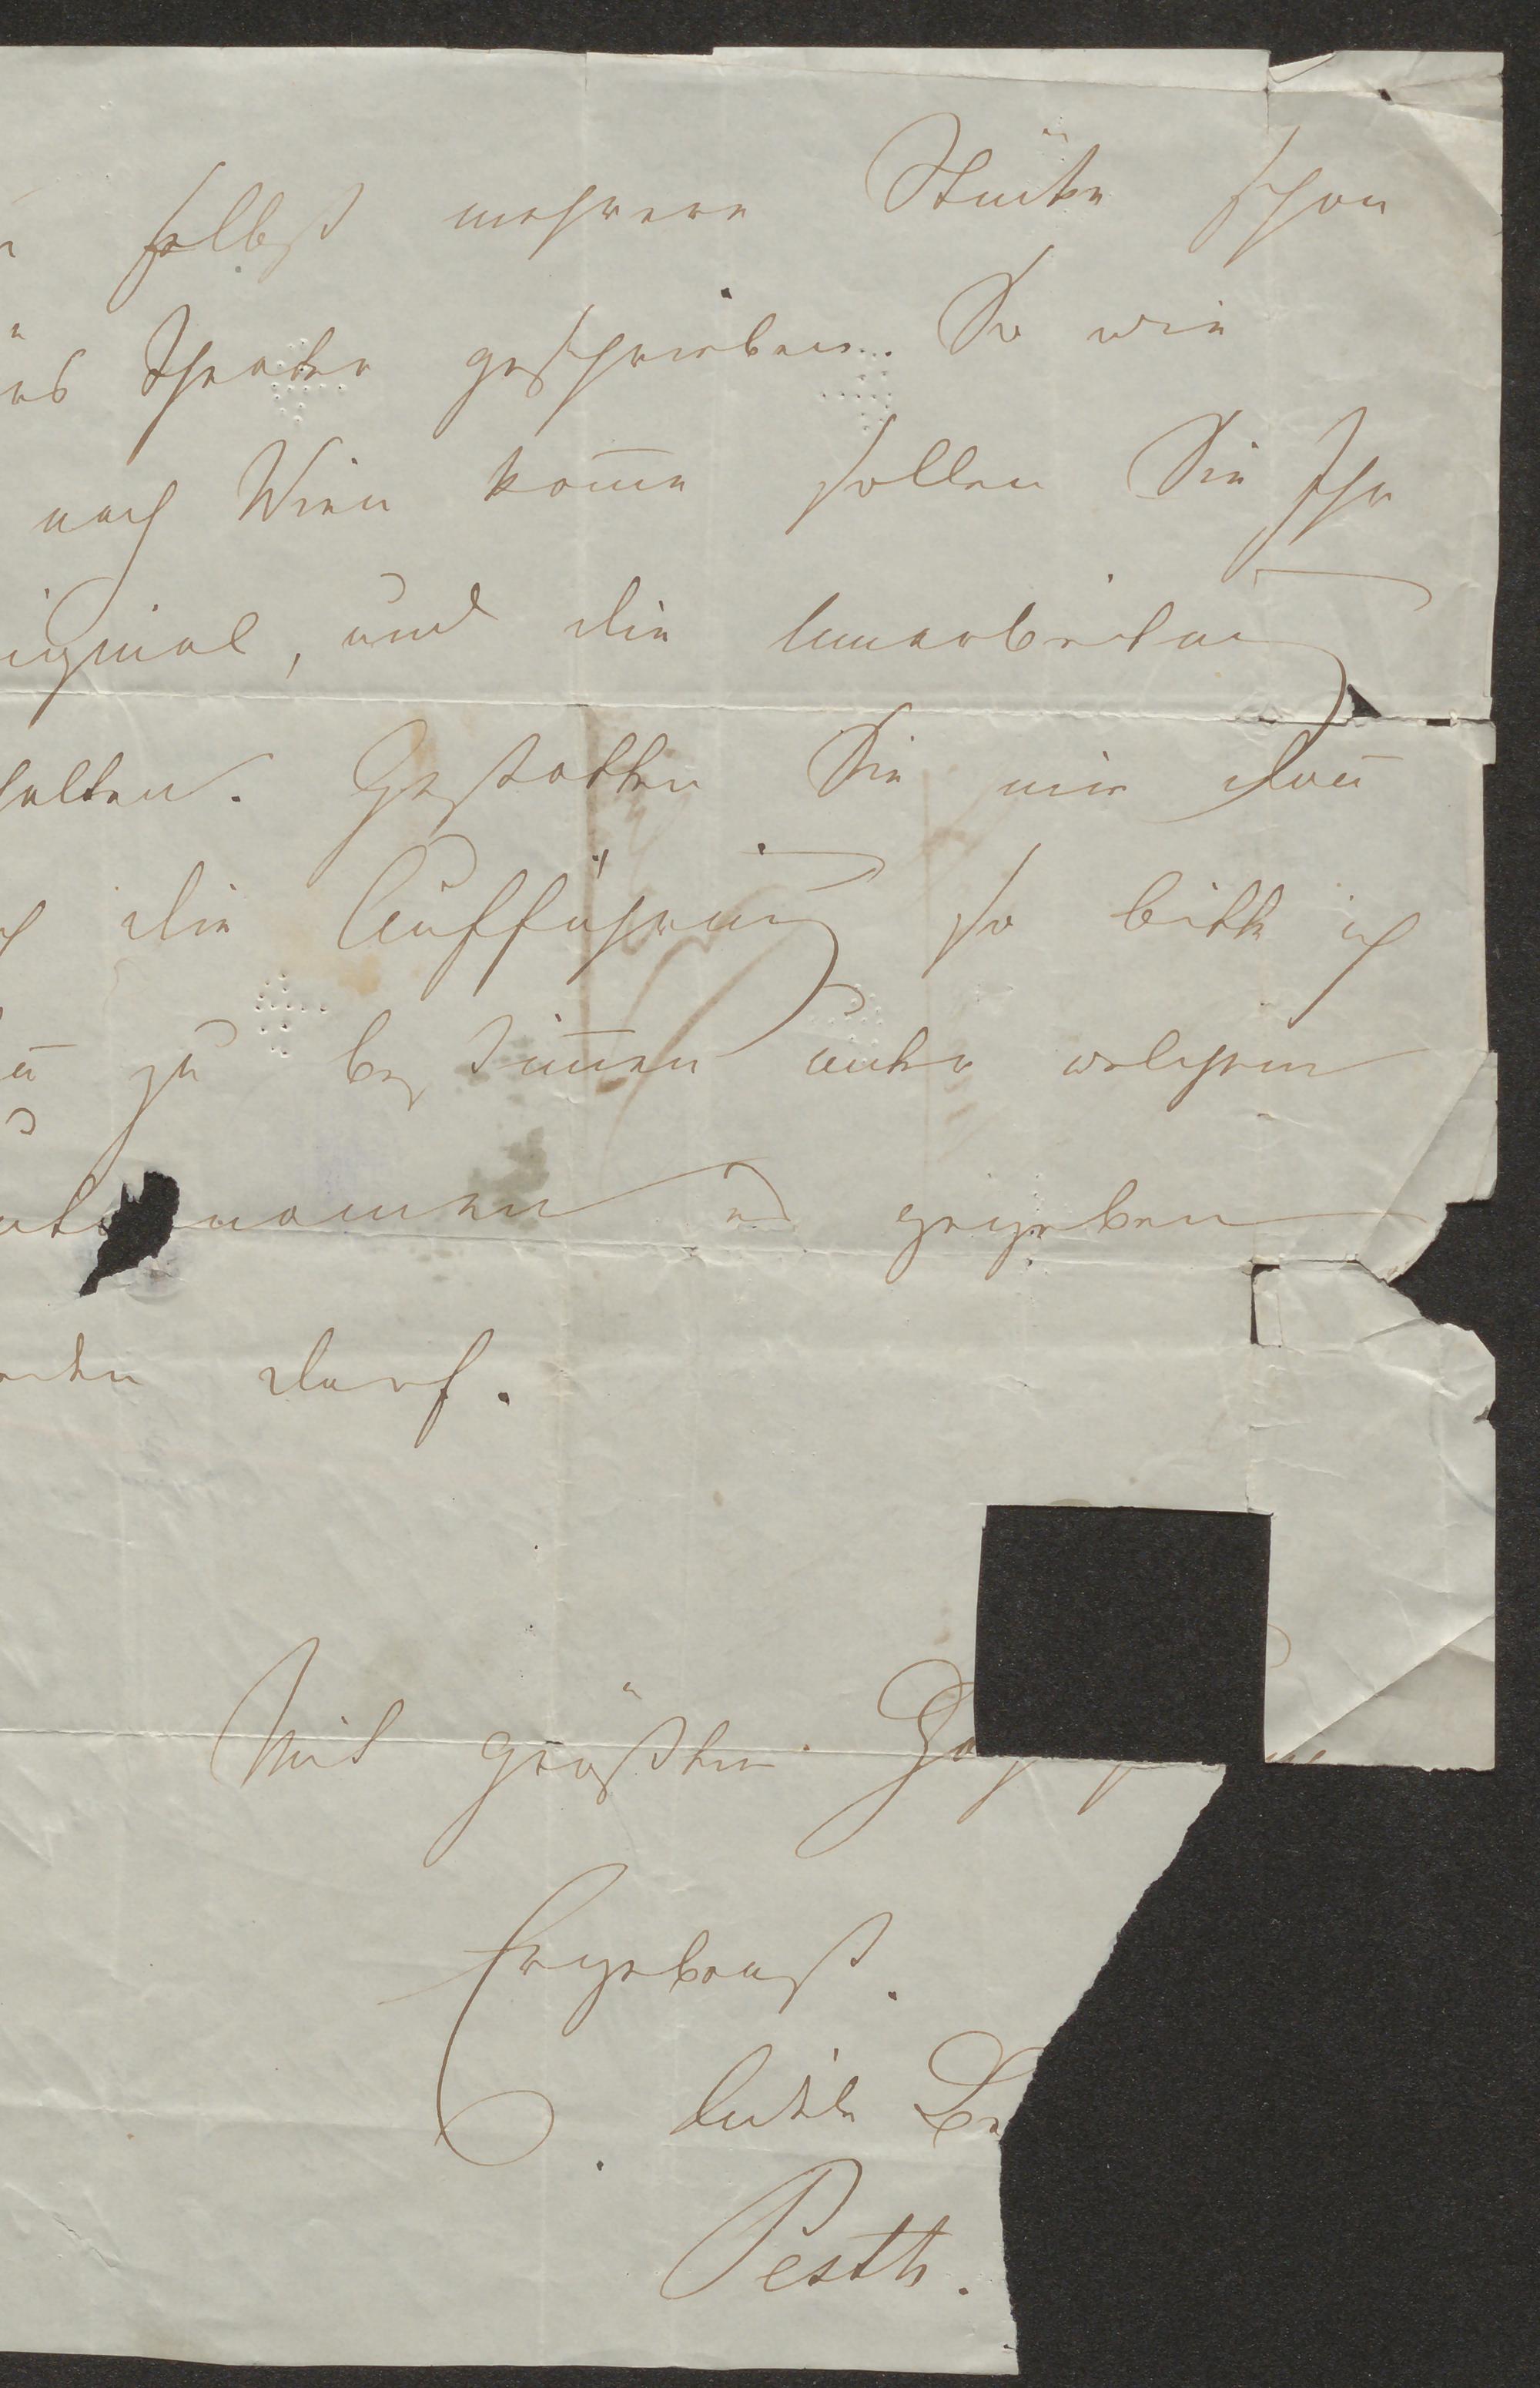 selbst mehrere Stücke schon
Theater geschrieben. So wie
nach Wien kom̄e sollen Sie Ihr
iginal, und die Umarbeitung
halten. Gestatten Sie mir dan̄
die Aufführung so bitte ich
zu bestim̄en unter welchem
namen es gegeben
darf.
Mit größter
Ergebenst.
Pesth.